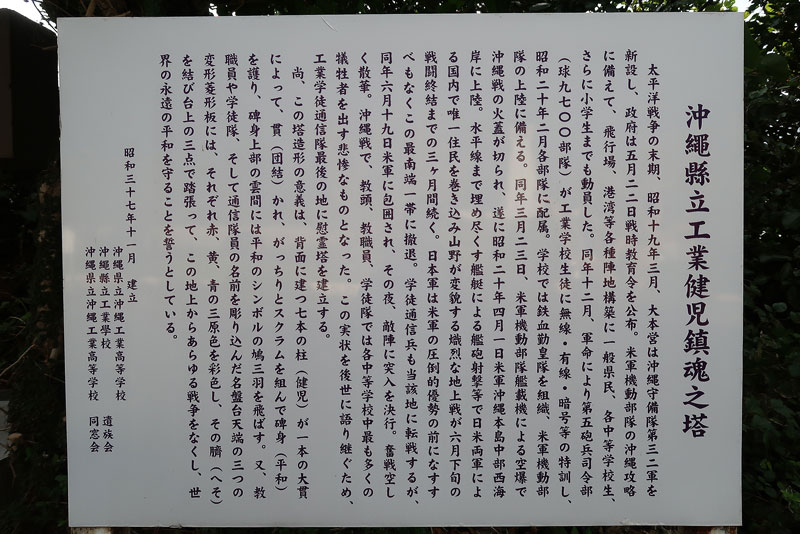 沖繩縣立工業健児鎮魂之塔
太平洋戦争の末期、昭和十九年三月、大本営は沖縄守備隊第三二軍を
新設し、政府は五月二二日戦時教育令を公布。米軍機動部隊の沖縄攻略
に備えて、飛行場、港湾等各種陣地構築に一般県民、各中等学校生、
さらに小学生までも動員した。同年十二月、軍命により第五砲兵司令部
(球九七〇〇部隊)が工業学校生徒に無線・有線・暗号等の特訓し、
昭和二十年二月各部隊に配属。学校では鉄血勤皇隊を組織、米軍機動部
隊の上陸に備える。同年三月二三日、米軍機動部隊艦載機による空爆で
沖縄戦の火蓋が切られ、遂に昭和二十年四月一日米軍沖縄本島中部西海
岸に上陸。水平線まで埋め尽くす艦艇による艦砲射撃等で日米両軍によ
る国内で唯一住民を巻き込み山野が変貌する熾烈な地上戦が六月下旬の
戦闘終結までの三ヶ月間続く。日本軍は米軍の圧倒的優勢の前になすす
べもなくこの最南端一帯に撤退。学徒通信兵も当該地に転戦するが、
同年六月十九日米軍に包囲され、その夜、敵陣に突入を決行。奮戦空し
く散華。沖縄戦で、教頭、教職員、学徒隊では各中等学校中最も多くの
犠牲者を出す悲惨なものとなった。この実状を後世に語り継ぐため、
工業学徒通信隊最後の地に慰霊塔を建立する。
尚、この塔造形の意義は、背面に建つ七本の柱(健児)が一本の大貫
によって、貫(団結)かれ、がっちりとスクラムを組んで碑身(平和)
を護り、碑身上部の雲間には平和のシンボルの鳩三羽を飛ばす。又、教
職員や学徒隊、そして通信隊員の名前を彫り込んだ名盤台天端の三つの
変形菱形板には、それぞれ赤、黄、青の三原色を彩色し、その臍(へそ)
を結び台上の三点で踏張って、この地上からあらゆる戦争をなくし、世
界の永遠の平和を守ることを誓うとしている。
昭和三十七年十一月 建立
沖縄県立沖縄工業高等学校
沖繩縣立工業学校 遺族会
沖縄県立沖縄工業高等学校 同窓会